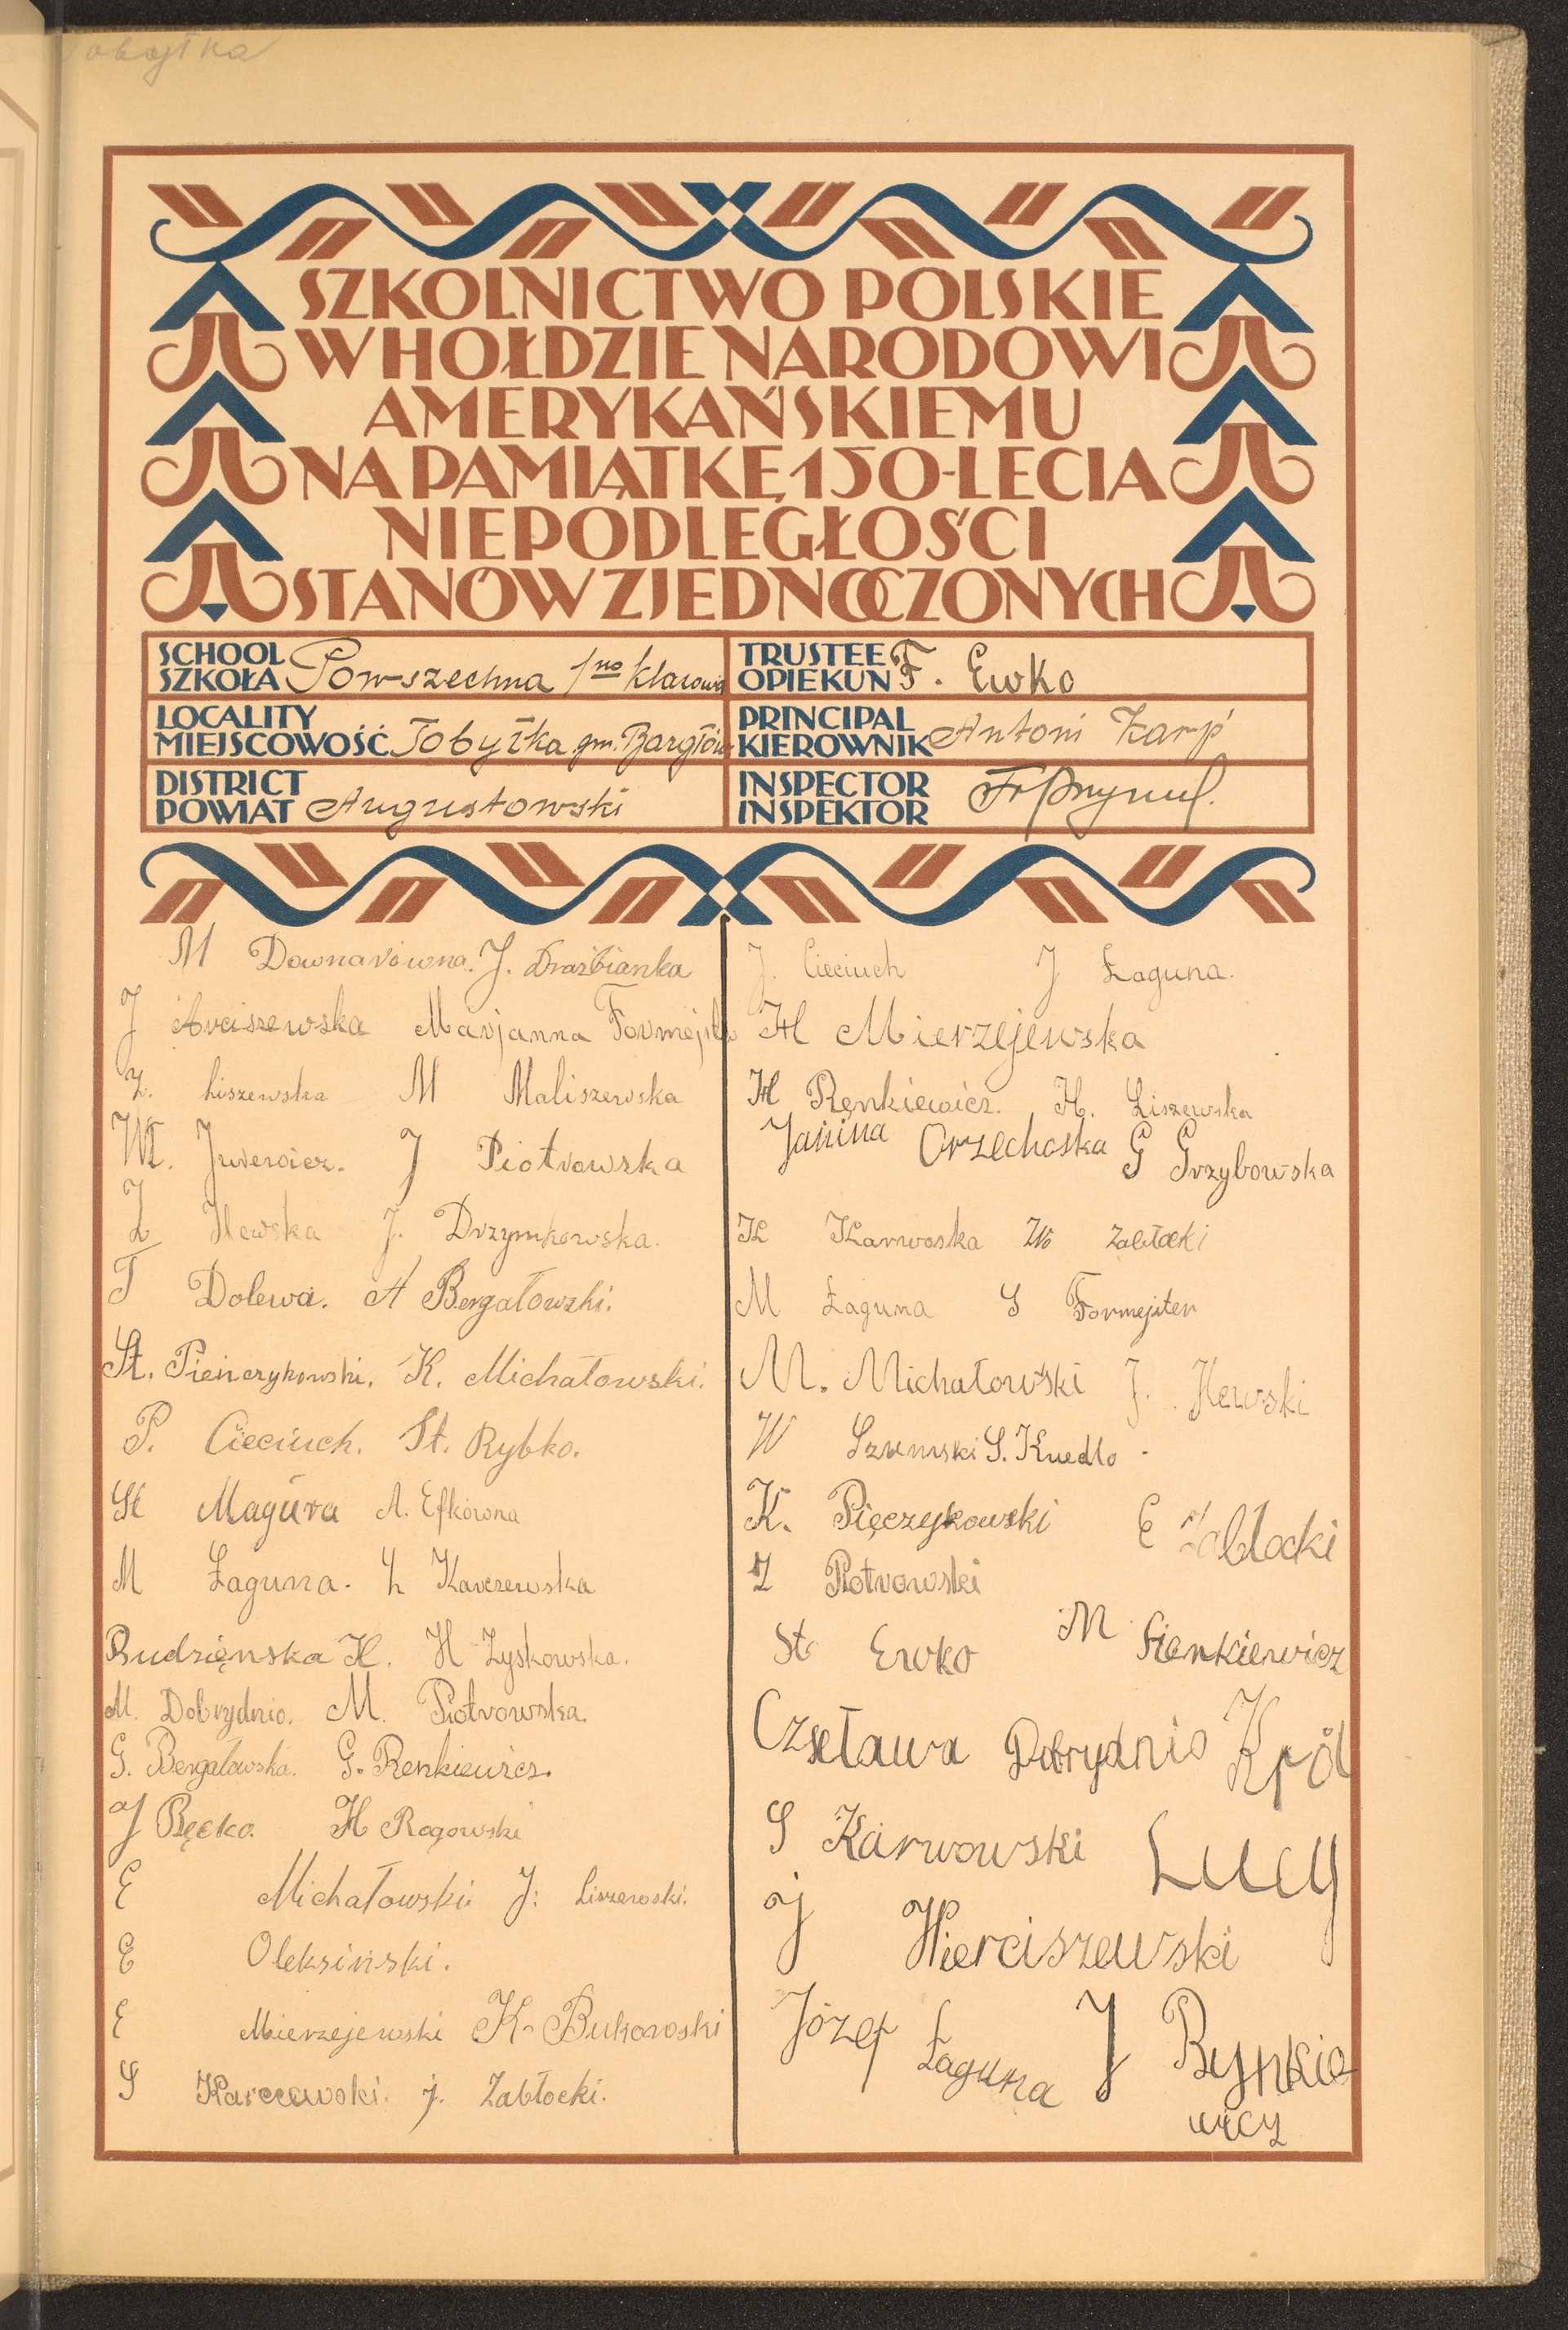 SZKOLNICTWO POLSKIE
W HOŁDZIE NARODOWI
AMERYKAŃSKIEMU
NA PAMIĄTKĘ 150-LECIA
NIEPODLEGŁOŚCI
STANÓW ZJEDNOCZONYCH
SCHOOL
SZKOŁA Powszechna 1no klasowa
TRUSTEE
OPIEKUN F. Ewko
LOCALITY
MIEJSCOWOŚĆ Tobyłka gm. Bargłów
PRINCIPAL
KIEROWNIK Antoni Karp'
DISTRICT
POWIAT Augustowski
INSPECTOR
INSPEKTOR
M Downarówna. J. Drażbianka
J Arciszewska Marjanna Formejster
Z. Liszewska M Maliszewska
Wł. J Piotrowska
Z Ilewska J. Drzymkowska.
T Dolewa. A Bergałowski.
St. Pieńczykowski. K. Michałowski.
P. Cieciuch. St. Rybko.
St Magura A. Efkówna
M Łaguna. Z Karczewska
Rudzięnska H. H Zyskowska.
M. Dobrydnio. M. Piotrowska.
G. Bergałowska. G. Renkiewicz.
J Bęćko. H Rogowski
E Michałowski J. Liszewski.
E Oleksiński.
E Mierzejewski K. Bukowoski
S Karczewski. j. Zabłocki.
J. Cieciuch J Łaguna.
H Mierzejewska
H Renkiewicz. H. Liszewska
Janina Orzechoska G Grzybowska
H Karwoska Wo Zabłocki
M Łaguna S Formejster
M. Michałowski J. Ilewski
W S. Knedlo
K. Pięczykowski E Zabłocki
Z Piotrowski
St Ewko M Sienkiewicz
Czsetawa Dobrydnio Król
S Karwowski Lucy
j Wierciszewski
Józef Łaguna J Rynkie
wicz